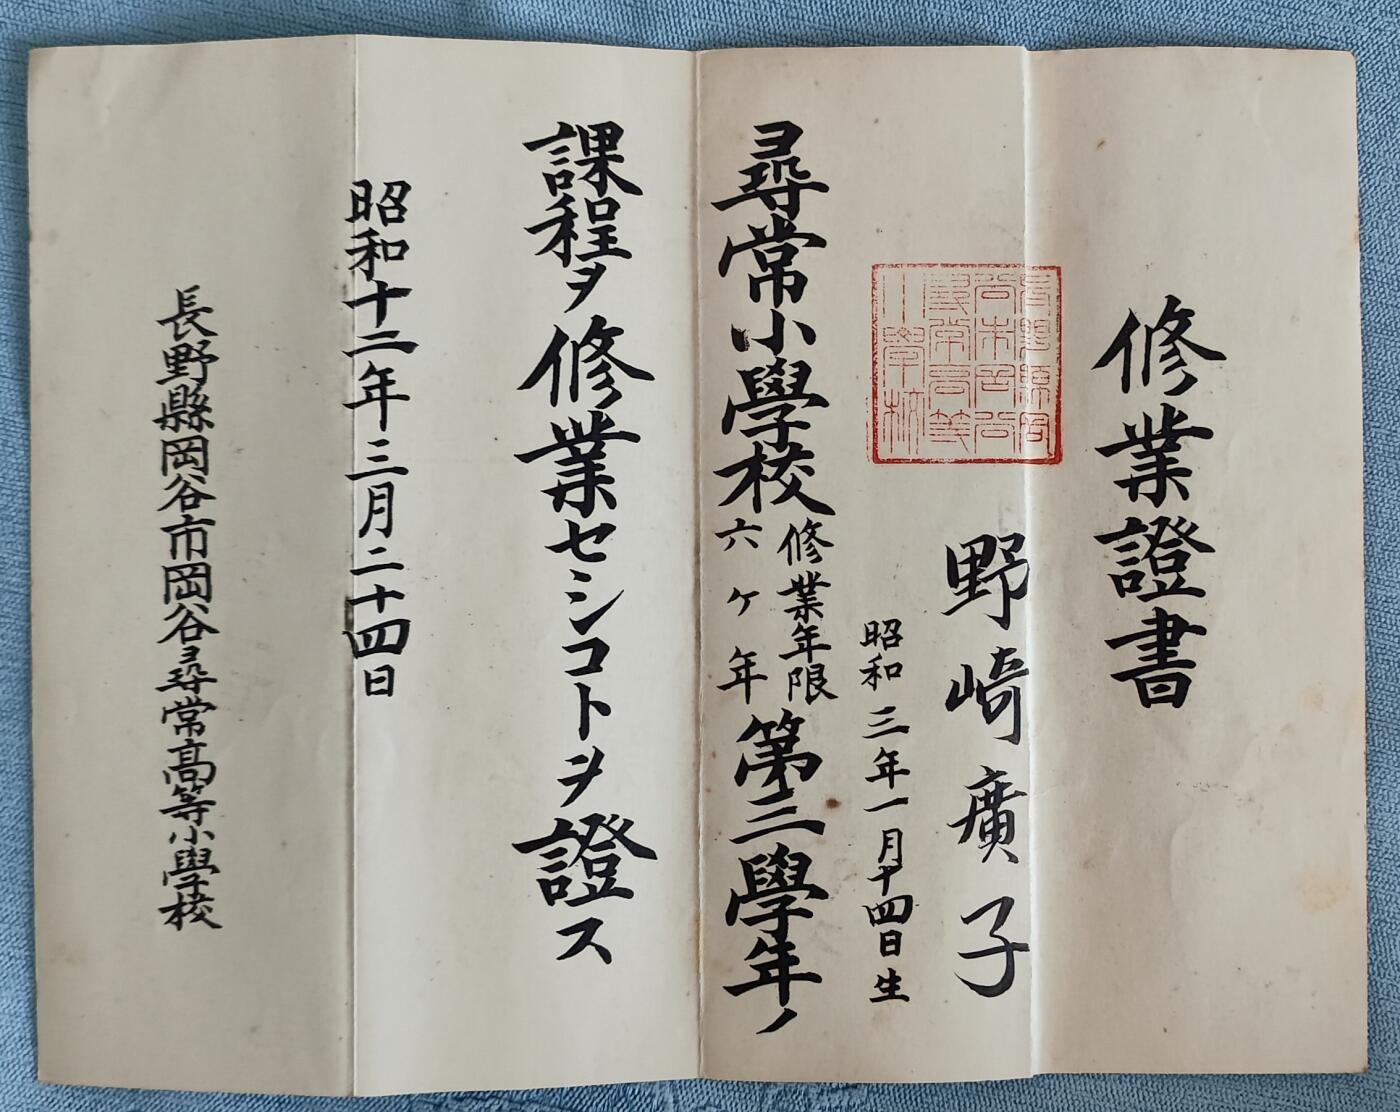 修業證書
野崎廣子
昭和三年一月十四日生
長野縣岡
谷市岡谷
尋常高等
小學校
尋常小學校修業年限六ヶ年第三學年ノ
課程ヲ修業セシコトヲ證ス
昭和十二年三月二十四日
長野縣岡谷市岡谷尋常高等小學校